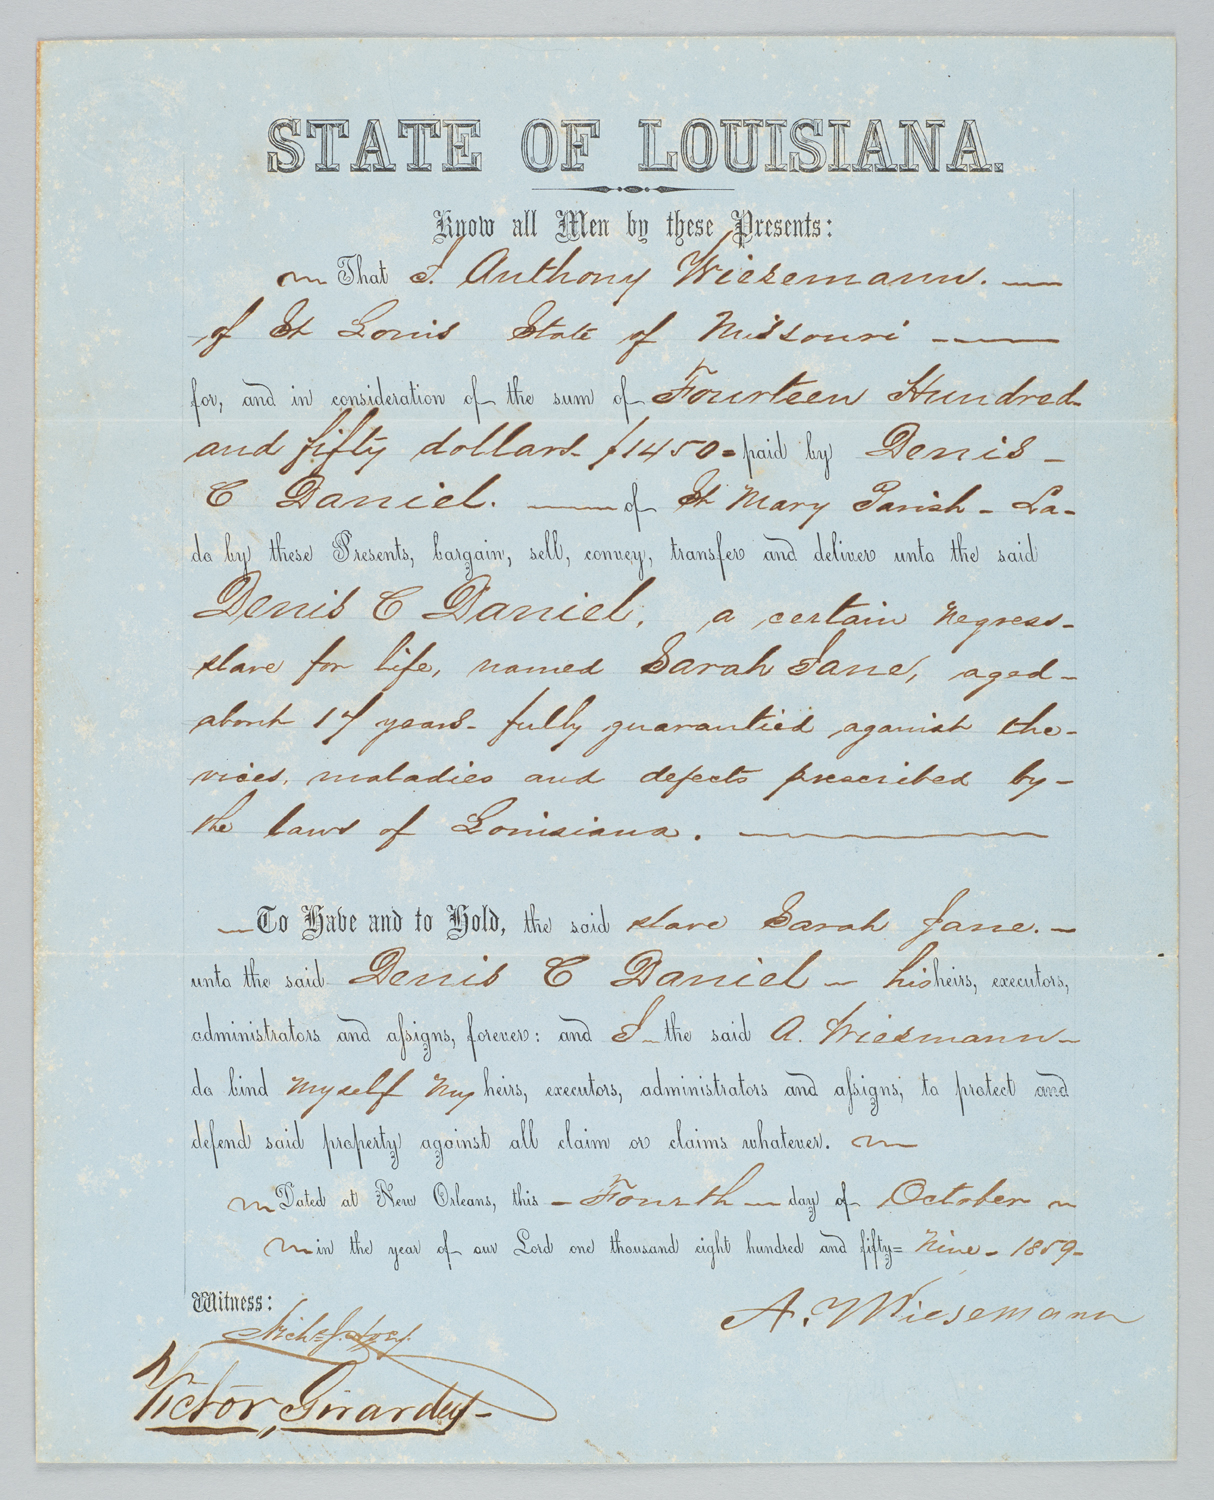 STATE OF LOUISIANA.
Know all Men by these Presents:
That I. Anthony Wiesemann.
of St Louis State of Missouri
for, and in consideration of the sum of Fourteen Hundred
and fifty dollars $1450 = paid by Denis
C Daniel. of St Mary Parish - La-
do by these Presents, bargain, sell, convey, transfer and deliver unto the said
Denis C Daniel, a certain Negress-
slave for life, named Sarah Jane, aged-
about 17 years- fully guarantied against the-
vices, maladies and defects prescribed by-
the laws of Louisiana.
To Have and to Hold, the said slave Sarah Jane.
unto the said Denis C Daniel - his heirs, executors,
administrators and assigns, forever: and I the said A. Wiesmann-
do bind myself My heirs, executors, administrators and assigns, to protect and
defend said property against all claim or claims whatever.
Dated at New Orleans, this - Fourth - day of October
in the year of our Lord one thousand eight hundred and fifty= Nine - 1859-
Witness:
A. Wiesemann
Victor, Girardey-